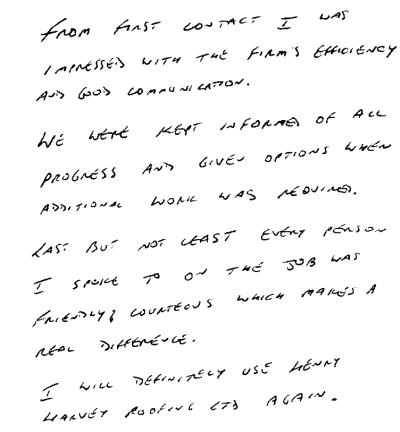 FROM FIRST CONTACT I WAS
IMPRESSED WITH THE FIRM'S EFFICIENCY
AND GOOD COMMUNICATION.
WE WERE KEPT INFORMED OF ALL
PROGRESS AND GIVEN OPTIONS WHEN
ADDITIONAL WORK WAS REQUIRED.
LAST BUT NOT LEAST EVERY PERSON
I SPOKE TO ON THE JOB WAS
FRIENDLY & COURTEOUS WHICH MAKES A
REAL DIFFERENCE.
I WILL DEFINITELY USE HENRY
HARVEY ROOFING LTD AGAIN.